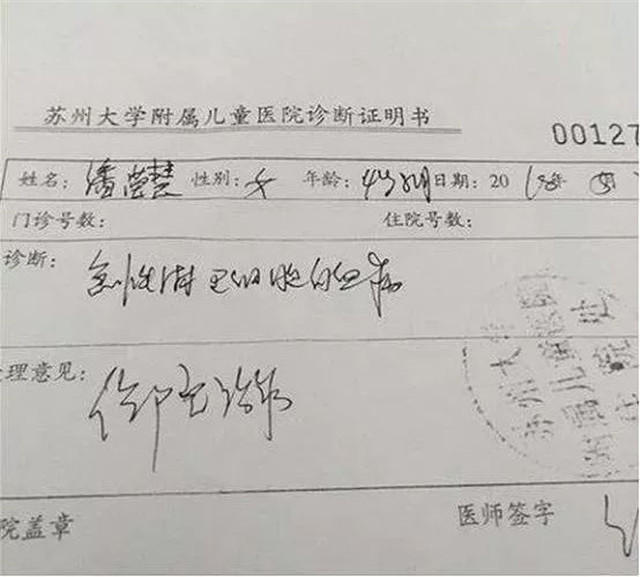 苏州大学附属儿童医院诊断证明书
00127
姓名:潘莹慧 性别:女 年龄:4岁 日期:2018年
门诊号数: 住院号数:
诊断:急性淋巴细胞白血病
理意见:
院盖章 医师签字